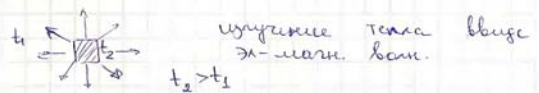 t₁
t₂
излучение тепла ввиде
эл-магн. волн.
t₂ > t₁